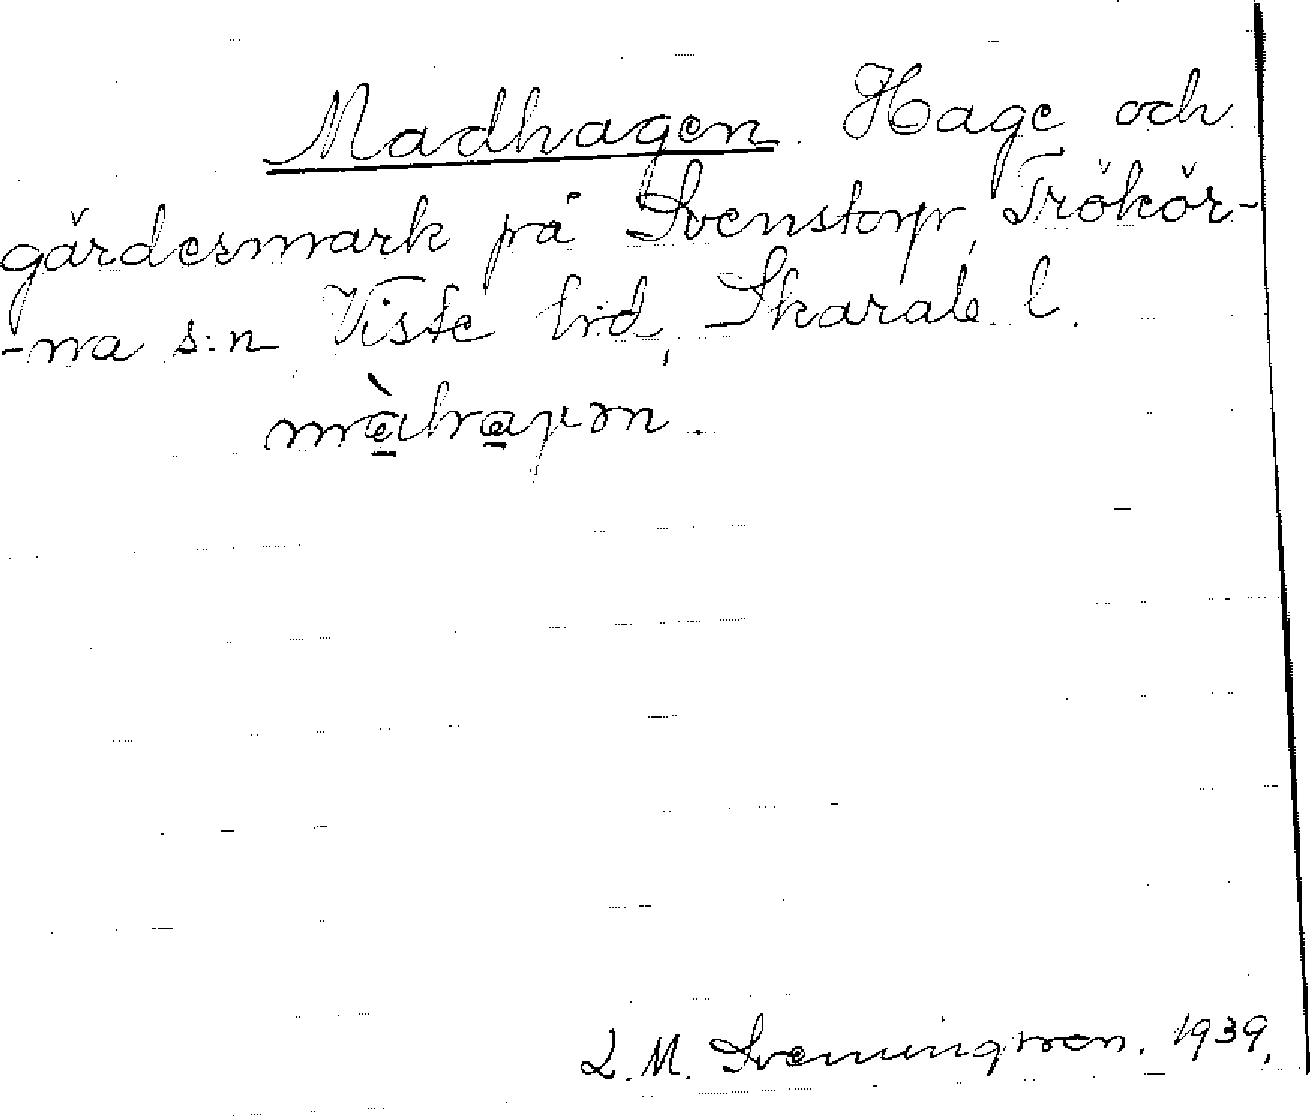 Madhagen. Hage och
gärdesmark på Svenstorp, Trökör-
-na s:n Viste hd, Skarab. l.
L. M. Svenungsson. 1939.